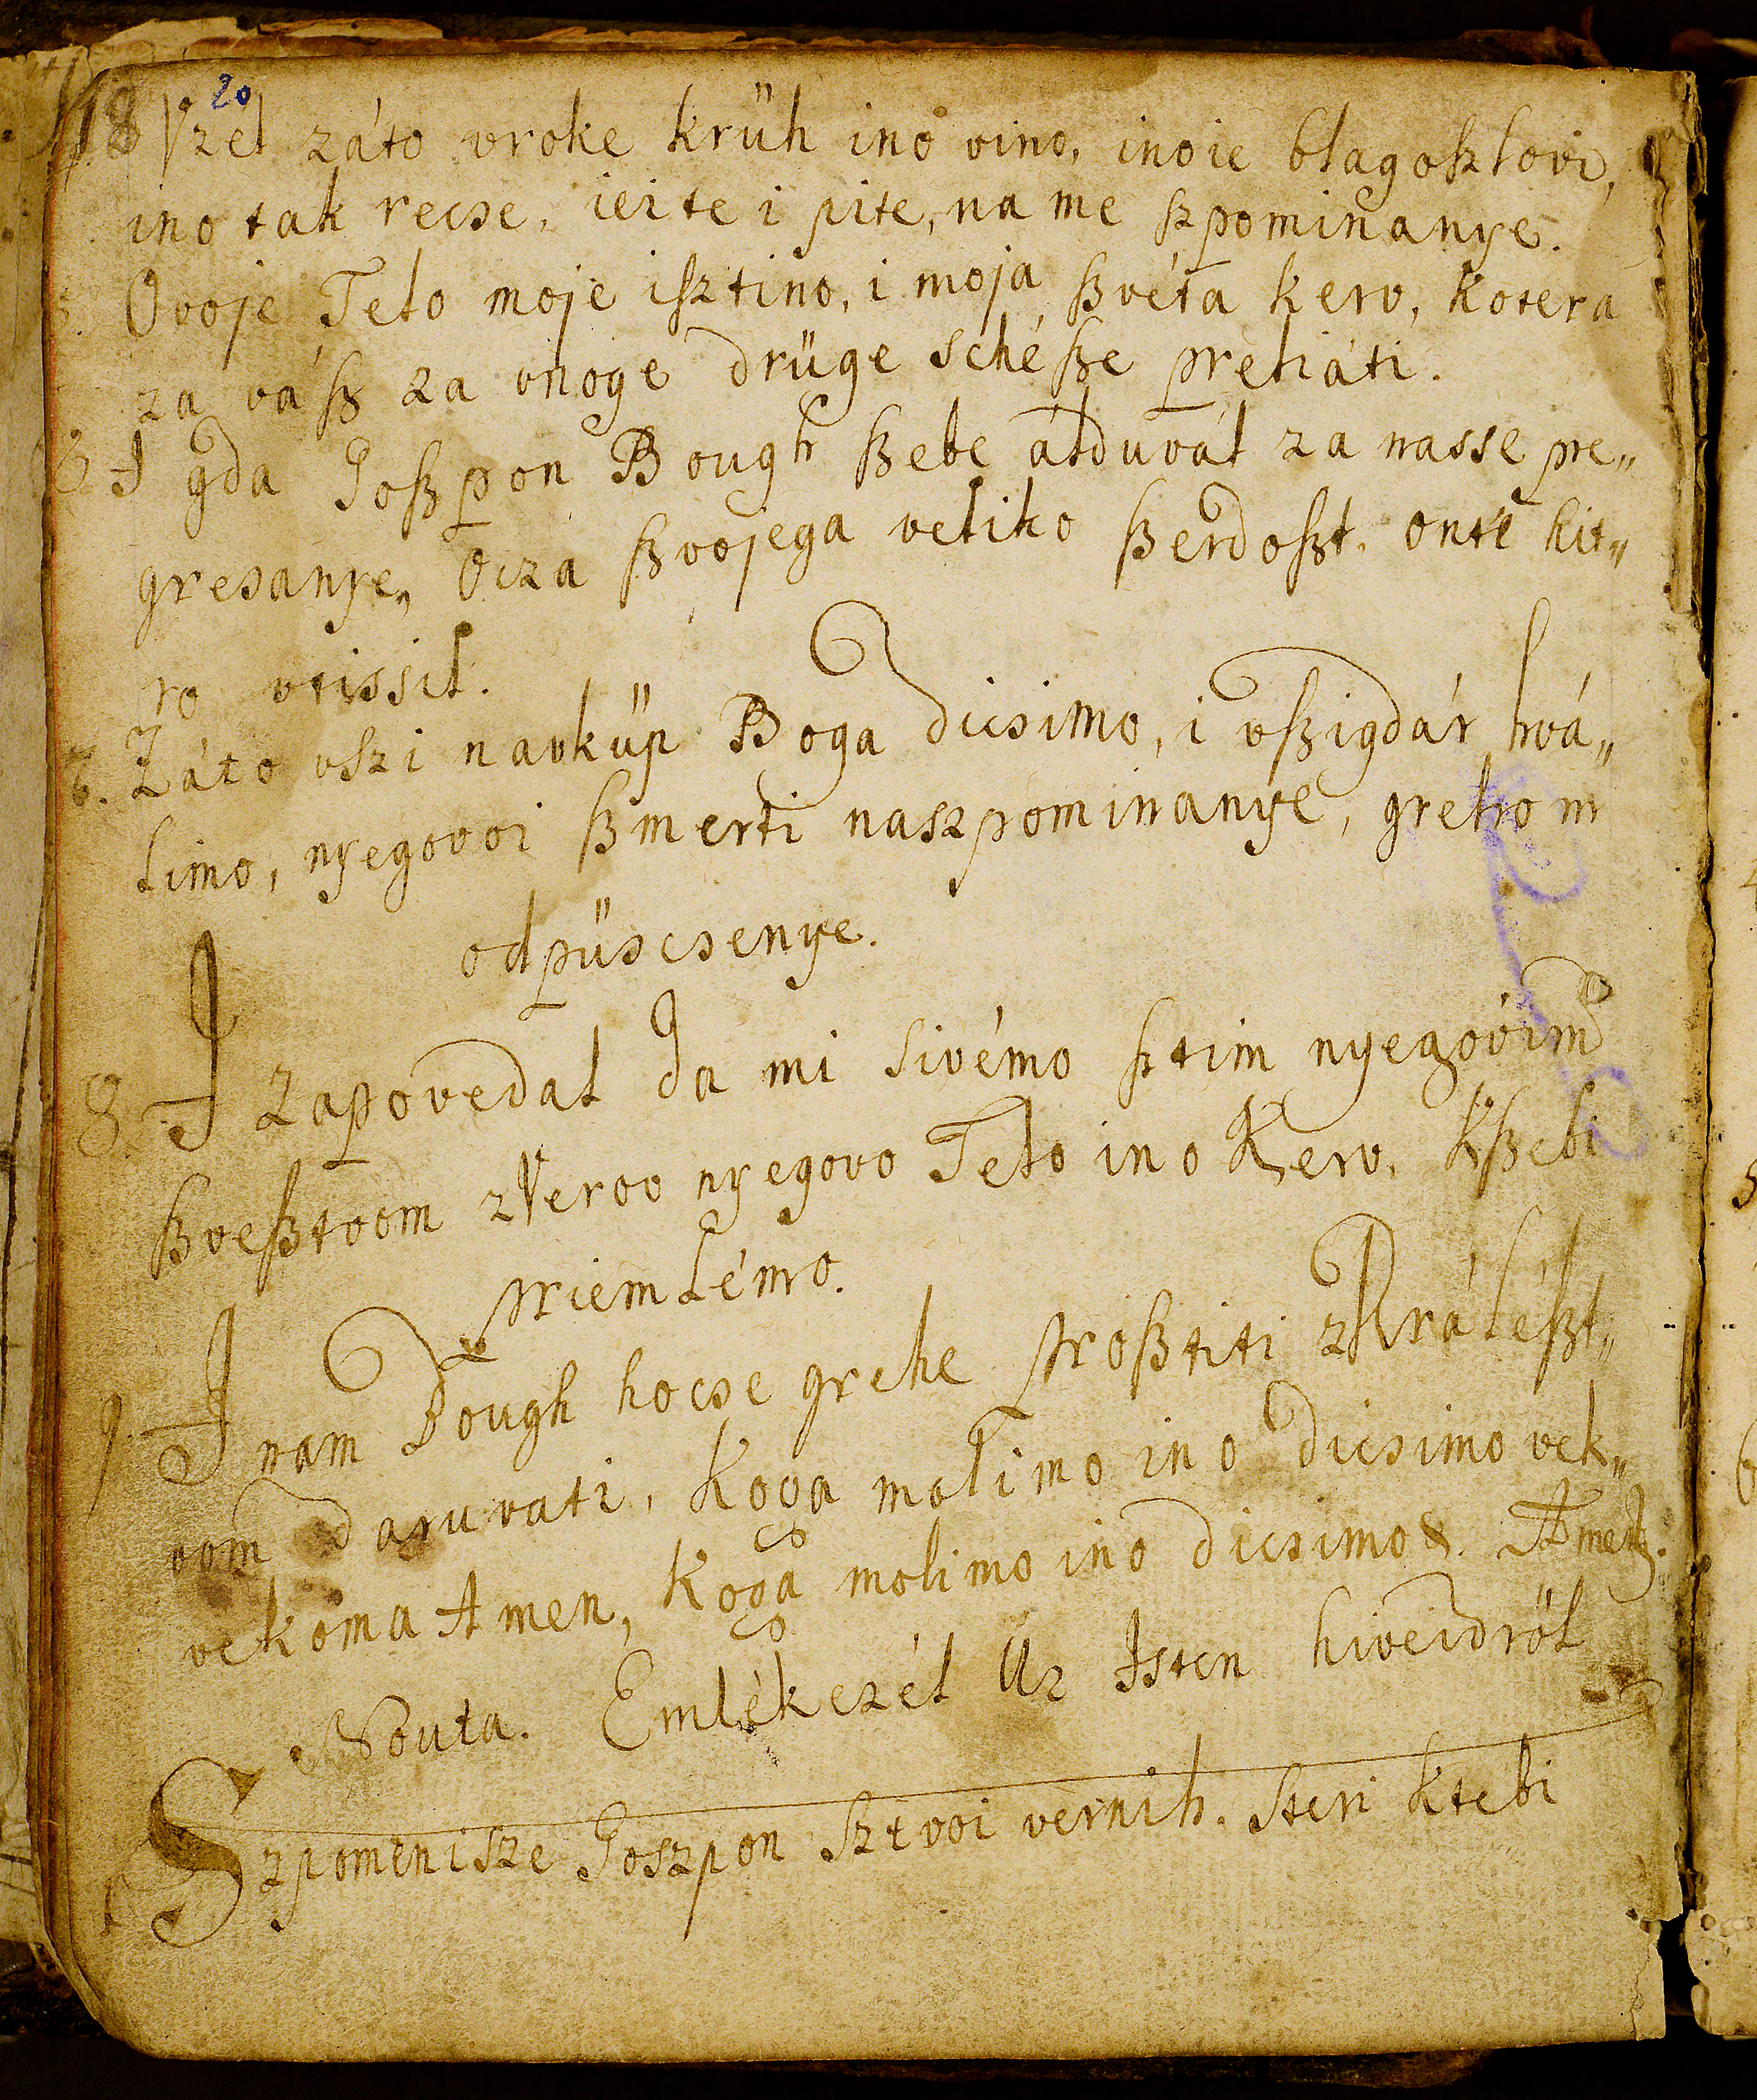 20
18 Vzél záto vroke krüh ino vino, inoie blagoszlovi,
ino tak recse, ieite i pite, na me szpominanye.
5. Ovoje Telo moje isztino, i moja szvéta kerv, kotera
za vász za vnoge drüge schésze preliáti.
6. I gda Goszpon Bough szebe álduvál za nasse pre„
gresanye„ Ocza szvojega veliko szerdoszt, onte hit„
ro vtissil.
7. Záto vszi navküp Boga dicsimo, i vszigdár hvá„
limo, nyegovoi szmerti naszpominanye, grehom
odpüscsenye.
8. I zapovedal da mi sivémo sztim nyegovim
szvesztvom zVerov nyegovo Telo ino Kerv, Kszebi
priemlémo.
9. I nam Bough hocse grehe prosztiti zKrálészt„
vom daruvati, Koga molimo ino dicsimo vek„
vekoma Amen, Koga molimo ino dicsimo &. Amen.
Nouta. Emlékezél Úr Isten hiveidröl
1 Szpomenisze Goszpon sztvoi vernih. steri ktebi